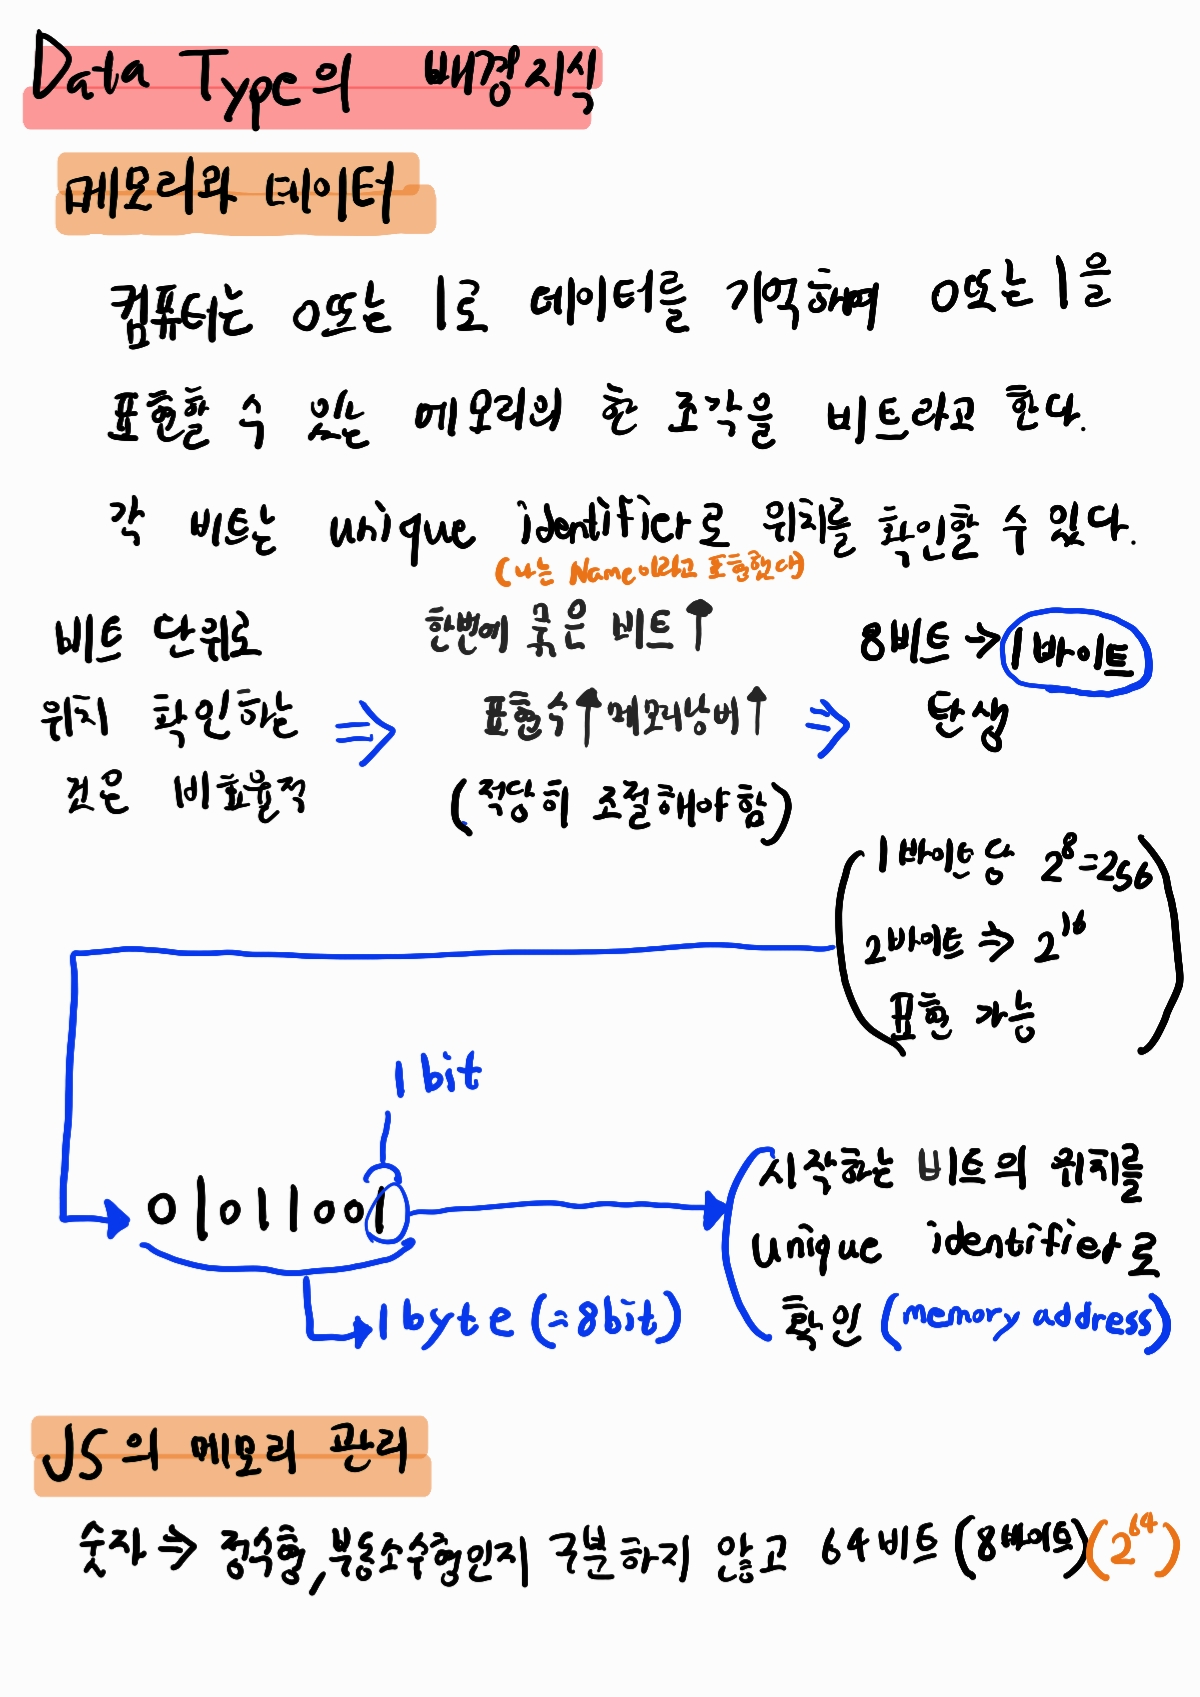 Data Type의 배경지식
메모리와 데이터
컴퓨터는 0또는 1로 데이터를 기억하며 0또는 1을
표현할 수 있는 메모리의 한 조각을 비트라고 한다.
각 비트는 unique identifier로 위치를 확인할 수 있다.
(나는 Name이라고 표현했다)
비트 단위로
위치 확인하는
것은 비효율적
⇒
한번에 묶은 비트↑
표현수↑메모리낭비↑
(적당히 조절해야함)
⇒
8비트→1바이트
탄생
(1바이트당 2⁸=256
2바이트⇒2¹⁶
표현 가능)
1 bit
01011001
1 byte (=8bit)
(시작하는 비트의 위치를
unique identifier로
확인 (memory address)
JS의 메모리 관리
숫자⇒정수형,부동소수형인지 구분하지 않고 64비트(8바이트)(2⁶⁴)